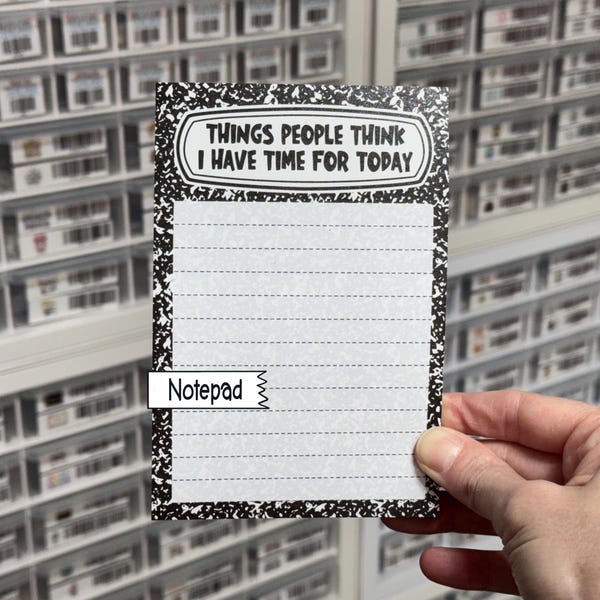 THINGS PEOPLE THINK
I HAVE TIME FOR TODAY
Notepad